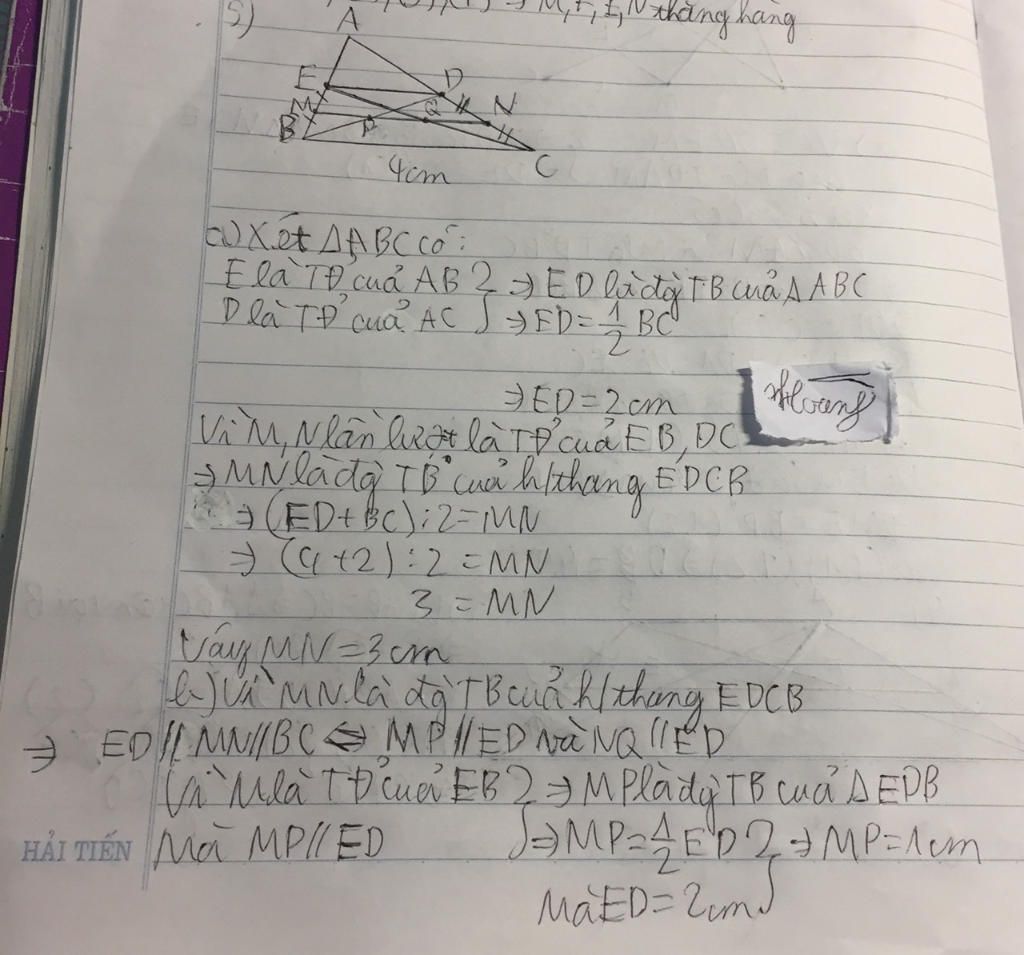 ⇒ M, F, E, N thẳng hàng
5)
A
E D
M Q N
B P
C
4cm
a) Xét ΔABC có:
E là TĐ cuả AB } ⇒ ED là đg TB cuả ΔABC
D là TĐ cuả AC } ⇒ ED = 1/2 BC
⇒ ED = 2cm
Vì M, N lần lượt là TĐ cuả EB, DC
⇒ MN là đg TB cuả h/thang EDCB
⇒ (ED+BC):2 = MN
⇒ (4+2):2 = MN
3 = MN
Vậy MN = 3cm
b) Vì MN là đg TB cuả h/thang EDCB
⇒ ED // MN // BC ⇔ MP // ED và NQ // ED
Vì M là TĐ cuả EB } ⇒ MP là đg TB cuả ΔEDB
Mà MP // ED } ⇒ MP = 1/2 ED } ⇒ MP = 1cm
Mà ED = 2cm }
HẢI TIẾN